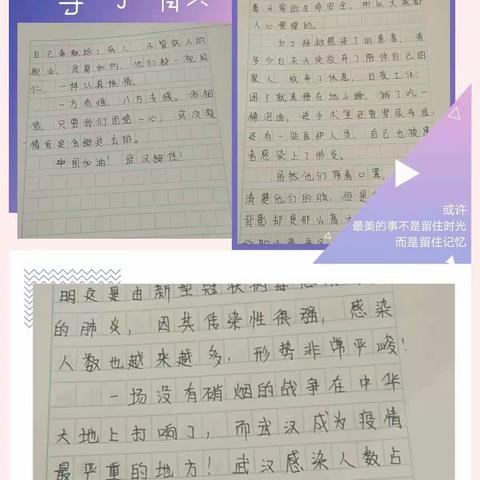 自己奉献给了病人，不管病人的
职业，贫富如何，他们都一视同
仁，一样认真热情。
一方有难，八方支援。我相
信，只要我们团结一心，这次疫
情肯定会挺过去的。
中国加油！武汉挺住！
着大家的生命安全，所以大家都
人心惶惶的。
为了拯救感染了的患者，有
多少白衣天使放弃了陪伴自己的
家人，放弃了休息，日夜工作，
困了就直接在地上睡，饿了吃一
桶泡面，进手术室还要穿尿布湿，
还有一些医护人员，自己也被患
者感染上了肺炎。
虽然他们带着口罩，
清楚他们的脸，但是
背影却是那么高大
或许
最美的事不是留住时光
而是留住记忆
明这是由新型冠状病毒感
的肺炎，因其传染性很强，感染
人数也越来越多，形势非常严峻！
一场没有硝烟的战争在中华
大地上打响了，而武汉成为疫情
最严重的地方！武汉感染人数占